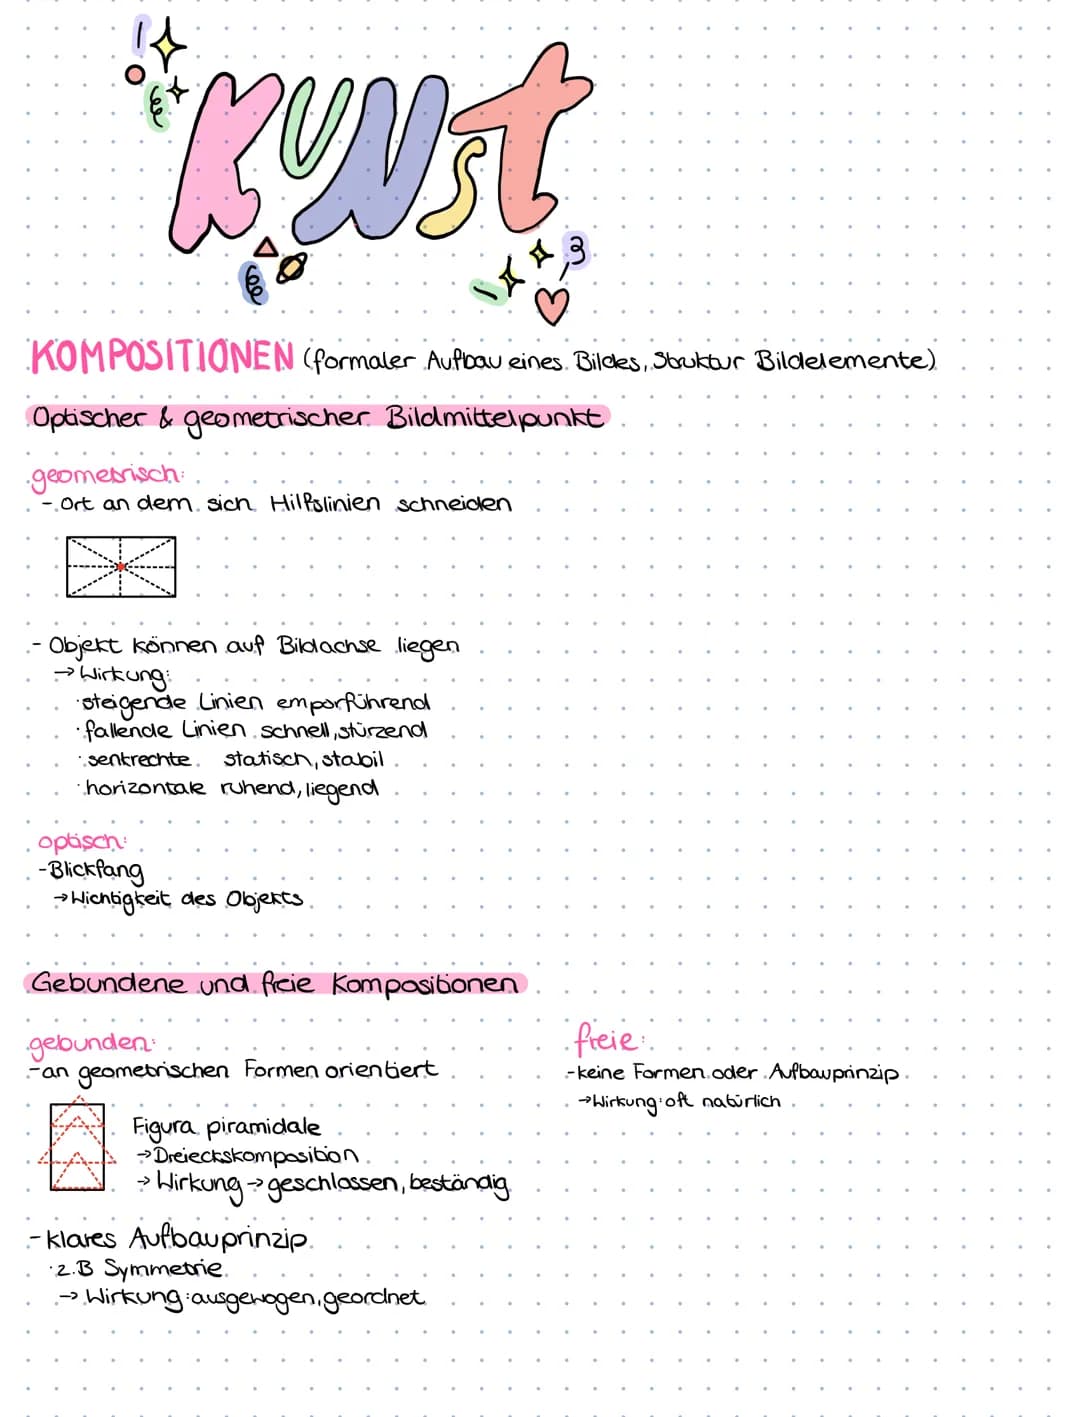 KUNST
KOMPOSITIONEN (formaler Aufbau eines Bildes, Struktur Bildelemente)
Optischer & geometrischer Bildmittelpunkt
geometrisch:
- Ort an dem sich Hilfslinien schneiden
- Objekt können auf Bildachse liegen
→ Wirkung:
· steigende Linien emporführend
· fallende Linien schnell, stürzend
· senkrechte statisch, stabil
· horizontale ruhend, liegend
optisch:
- Blickfang
→ Wichtigkeit des Objekts
Gebundene und freie Kompositionen
gebunden:
- an geometrischen Formen orientiert
Figura piramidale
→ Dreieckskomposition
→ Wirkung → geschlossen, beständig
- klares Aufbauprinzip
· z.B Symmetrie
→ Wirkung: ausgewogen, geordnet
freie:
- keine Formen oder Aufbauprinzip
→ Wirkung: oft natürlich